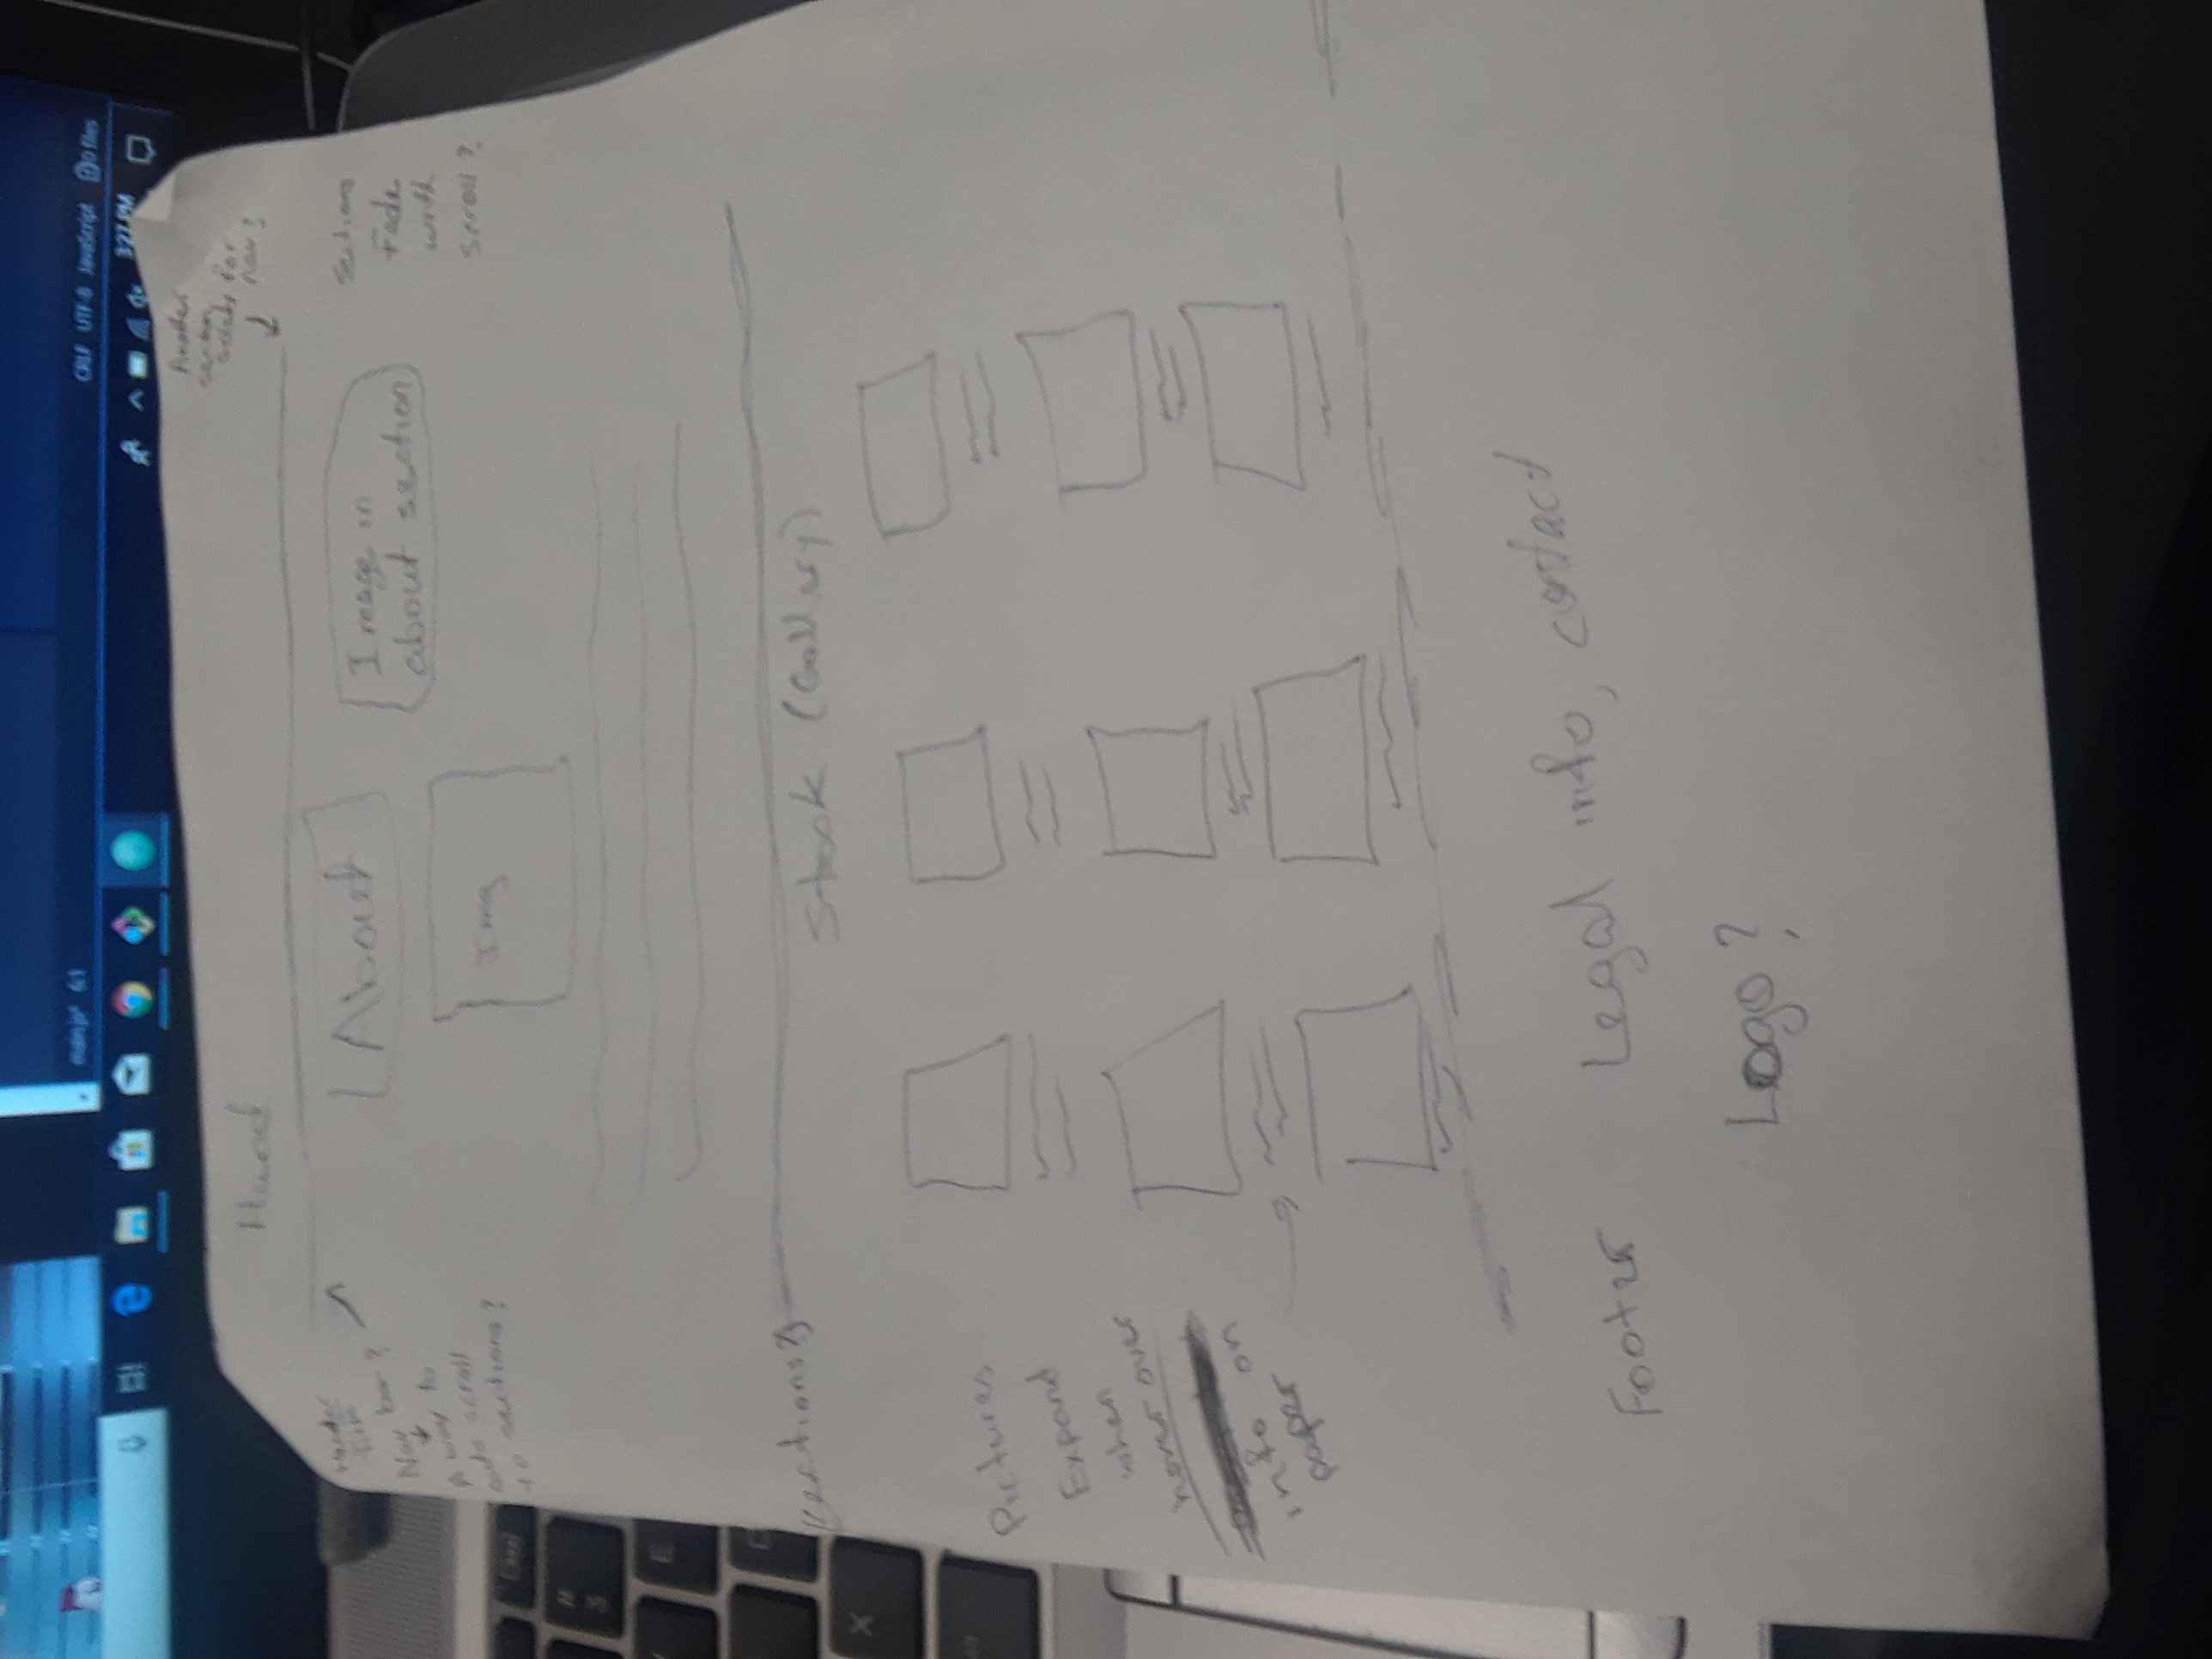 main.js* 6:1
CRLF UTF-8 JavaScript 0 files
3:27 PM
Another
section
for
nav?
Header
Nav bar?
A way to
auto scroll
to sections?
About
Image in
about section
Img
Sections
Fade
with
scroll?
(sections?)
Stock (Gallery)
Pictures
Expand
when
hover over
info on
paper
Footer
Legal info, contact
Logo?
E
X